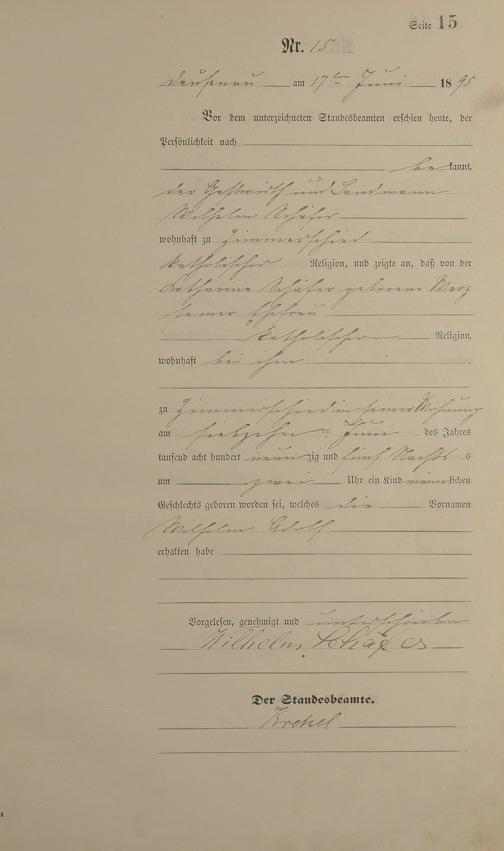 Seite 15
Nr. 15
Dausenau am 17ten Juni 1895
Vor dem unterzeichneten Standesbeamten erschien heute, der
Persönlichkeit nach
bekannt,
der Gastwirth und Landmann
Wilhelm Schäfer
wohnhaft zu Zimmerschied
katholischer Religion, und zeigte an, daß von der
Catharine Schäfer geborene Merz
seiner Ehefrau
katholischer Religion,
wohnhaft bei ihm
zu Zimmerschied in seiner Wohnung
am siebzehn ten Juni des Jahres
tausend acht hundert neunzig und fünf Nachts
um zwei Uhr ein Kind männlichen
Geschlechts geboren worden sei, welches die Vornamen
Wilhelm Adolf
erhalten habe
Vorgelesen, genehmigt und unterschrieben
Wilhelm Schäfer
Der Standesbeamte.